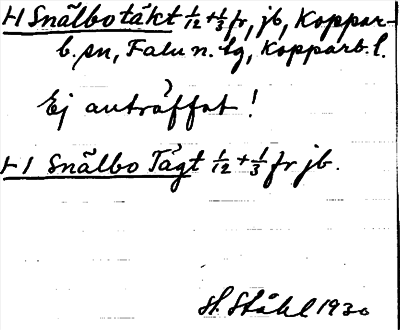 H Snålbotäkt 1/12 + 1/3 fr, jb, Koppar-
b. sn, Falu n. tg, Kopparb. l.
Ej anträffat!
H I Snålbo Tägt 1/12 + 1/3 fr jb.
H. Ståhl 1930